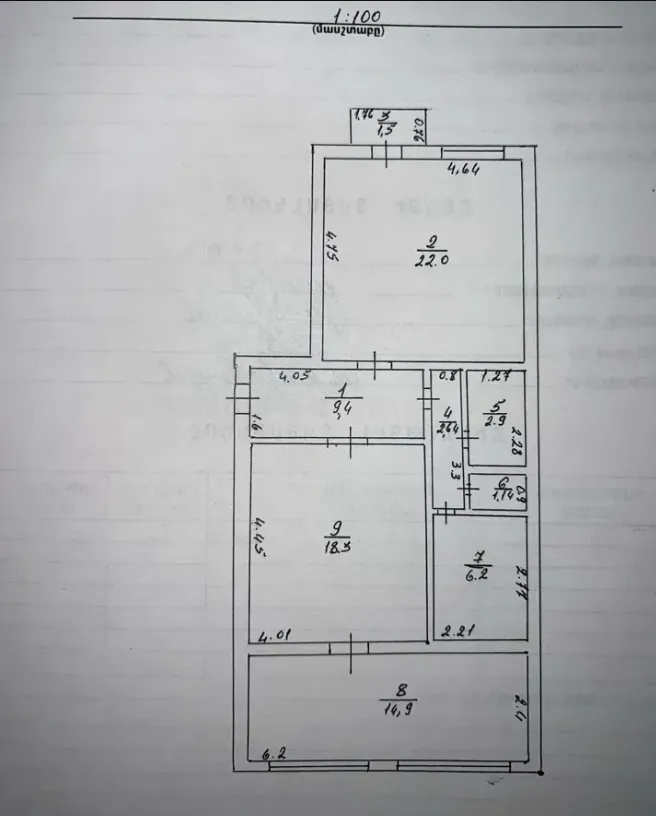 1:100
(մասշտաբը)
1,76 3 0.76
1,5
4,64
4.75
2
22.0
4.05
1
9,4
1.6
0.8
4
2.64
3.3
1.27
5
2.9
2.28
6
1.14
0.9
9
18.3
4.45
4.01
7
6.2
2.77
2.21
8
14,9
2.4
6.2